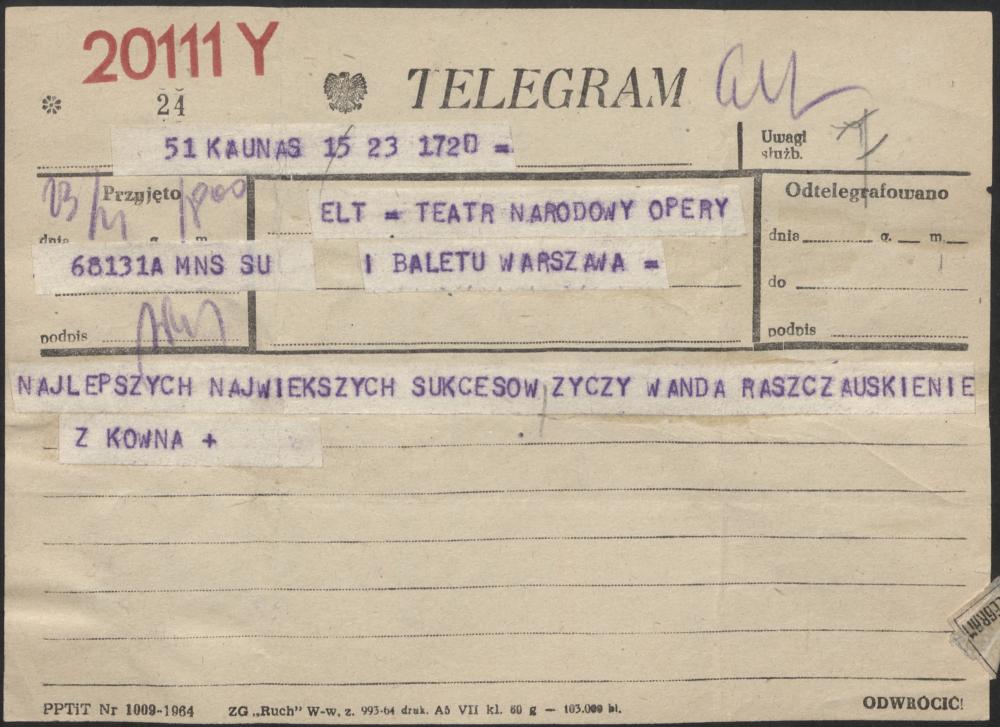 20111 Y
24
TELEGRAM
51 KAUNAS 15 23 1720 =
Uwagi
służb.
Przyjęto
23/XI 1800
ELT = TEATR NARODOWY OPERY
Odtelegrafowano
dnia g. m.
dnia g. m.
68131A MNS SU
I BALETU WARSZAWA =
do
podpis
podpis
NAJLEPSZYCH NAJWIEKSZYCH SUKCESOW ZYCZY WANDA RASZCZAUSKIENIE
Z KOWNA +
PPTiT Nr 1009-1964
ZG „Ruch” W-w, z. 993-64 druk. A5 VII kl. 60 g — 103.000 bl.
ODWRÓCIĆ!